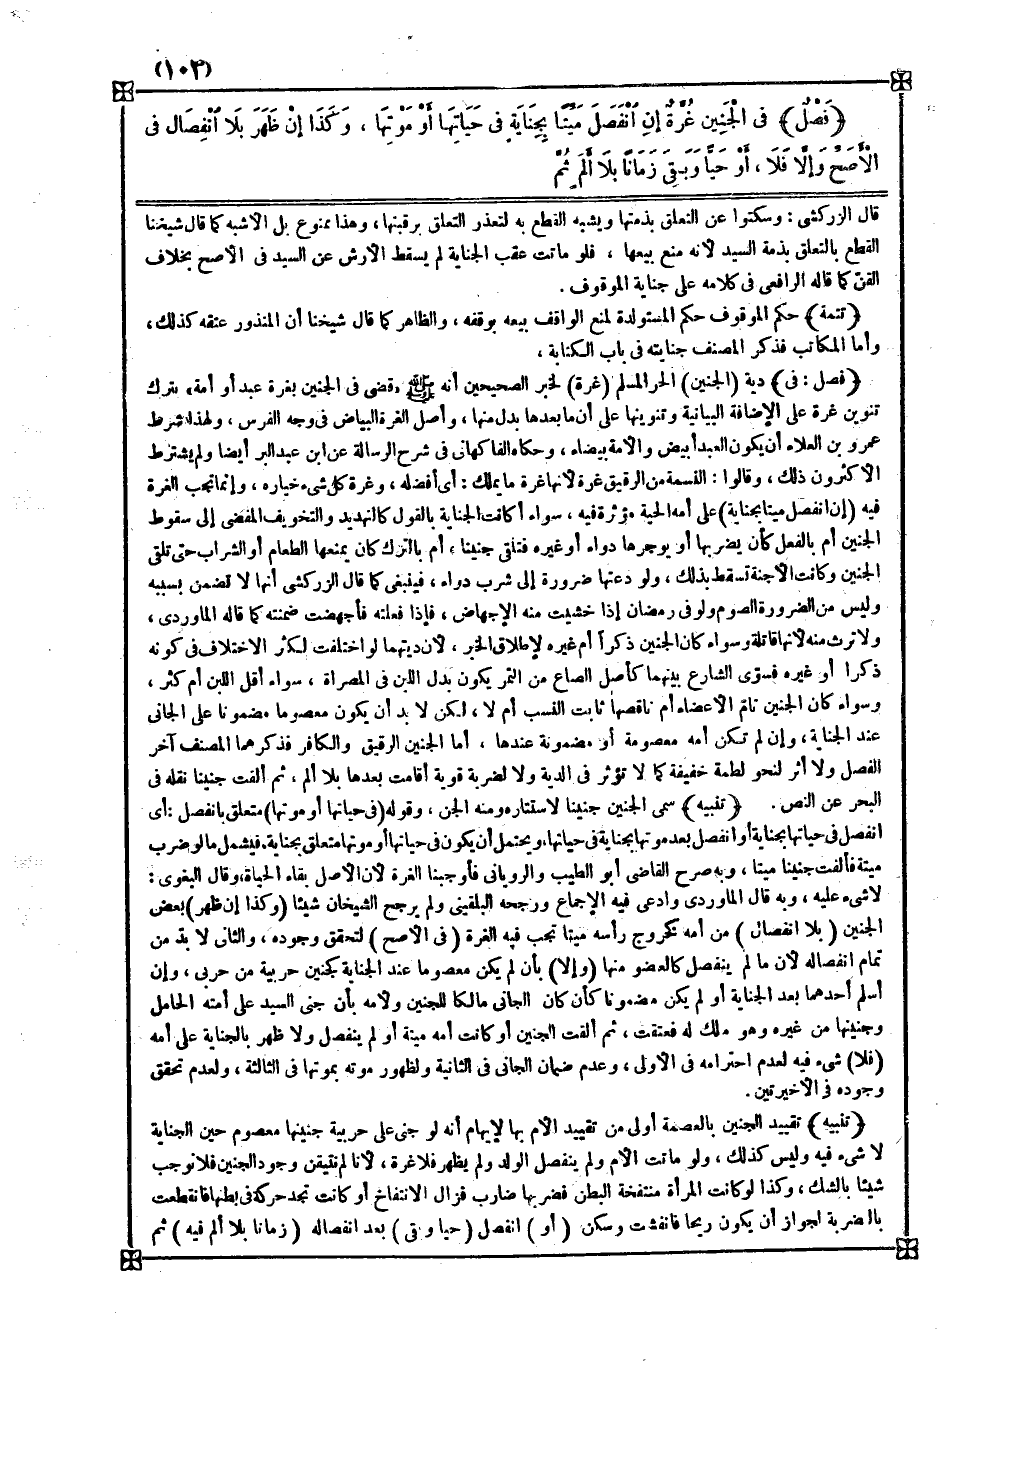 (١٠٣)
﴿فَصْلٌ﴾ فِى الْجَنِينِ غُرَّةٌ إِنِ انْفَصَلَ مَيِّتًا بِجِنَايَةٍ فِى حَيَاتِهَا أَوْ مَوْتِهَا ، وَكَذَا إِنْ ظَهَرَ بِلَا انْفِصَالٍ فِى
الْأَصَحِّ وَإِلَّا فَلَا ، أَوْ حَيًّا وَبَقِىَ زَمَانًا بِلَا أَلَمٍ ثُمَّ
قال الزركشى : وسكتوا عن التعلق بذمتها ويشبه القطع به لتعذر التعلق برقبتها ، وهذا ممنوع بل الأشبه كما قال شيخنا
القطع بالتعلق بذمة السيد لأنه منع بيعها ، فلو ماتت عقب الجناية لم يسقط الأرش عن السيد فى الأصح بخلاف
القن كما قاله الرافعى فى كلامه على جناية الموقوف .
﴿تتمة﴾ حكم الموقوف حكم المستولدة لمنع الواقف بيعه بوقفه ، والظاهر كما قال شيخنا أن المنذور عتقه كذلك ،
وأما المكاتب فذكر المصنف جنايته فى باب الكتابة ،
﴿فصل : فى﴾ دية (الجنين) الحر المسلم (غرة) لخبر الصحيحين أنه ﷺ «قضى فى الجنين بغرة عبد أو أمة» بترك
تنوين غرة على الإضافة البيانية وتنوينها على أن ما بعدها بدل منها ، وأصل الغرة البياض فى وجه الفرس ، ولهذا شرط
عمرو بن العلاء أن يكون العبد أبيض والأمة بيضاء ، وحكاه الفاكهانى فى شرح الرسالة عن ابن عبدالبر أيضا ولم يشترط
الأكثرون ذلك ، وقالوا : النسمة من الرقيق غرة لأنها غرة ما يملك : أى أفضله ، وغرة كل شىء خياره ، وإنما تجب الغرة
فيه (إن انفصل ميتا بجناية) على أمه الحية مؤثرة فيه ، سواء أكانت الجناية بالقول كالتهديد والتخويف المفضى إلى سقوط
الجنين أم بالفعل كأن يضربها أو يوجرها دواء أو غيره فتلقى جنينا ، أم بالترك كأن يمنعها الطعام أو الشراب حتى تلقى
الجنين وكانت الأجنة تسقط بذلك ، ولو دعتها ضرورة إلى شرب دواء ، فينبغى كما قال الزركشى أنها لا تضمن بسببه
وليس من الضرورة الصوم ولو فى رمضان إذا خشيت منه الإجهاض ، فإذا فعلته فأجهضت ضمنته كما قاله الماوردى ،
ولا ترث منه لأنها قاتلة وسواء كان الجنين ذكراً أم غيره لإطلاق الخبر ، لأن ديتهما لو اختلفت لكثر الاختلاف فى كونه
ذكرا أو غيره فسوّى الشارع بينهما كأصل الصاع من التمر يكون بدل اللبن فى المصراة ، سواء أقل اللبن أم كثر ،
وسواء كان الجنين تام الأعضاء أم ناقصها ثابت النسب أم لا ، لكن لا بد أن يكون معصوما مضمونا على الجانى
عند الجناية ، وإن لم تكن أمه معصومة أو مضمونة عندها ، أما الجنين الرقيق والكافر فذكرهما المصنف آخر
الفصل ولا أثر لنحو لطمة خفيفة كما لا تؤثر فى الدية ولا لضربة قوية أقامت بعدها بلا ألم ، ثم ألقت جنينا نقله فى
البحر عن النص . ﴿تنبيه﴾ سمى الجنين جنينا لاستتاره ومنه الجن ، وقوله (فى حياتها أو موتها) متعلق بانفصل : أى
انفصل فى حياتها بجناية أو انفصل بعد موتها بجناية فى حياتها، ويحتمل أن يكون فى حياتها أو موتها متعلق بجناية، فيشمل ما لو ضرب
ميتة فألقت جنينا ميتا ، وبه صرح القاضى أبو الطيب والرويانى فأوجبنا الغرة لأن الأصل بقاء الحياة، وقال البغوى :
لا شىء عليه ، وبه قال الماوردى وادعى فيه الإجماع ورجحه البلقينى ولم يرجح الشيخان شيئا (وكذا إن ظهر) بعض
الجنين ( بلا انفصال ) من أمه كخروج رأسه ميتا تجب فيه الغرة ( فى الأصح ) لتحقق وجوده ، والثانى لا بد من
تمام انفصاله لأن ما لم ينفصل كالعضو منها (وإلا) بأن لم يكن معصوما عند الجناية كجنين حربية من حربى ، وإن
أسلم أحدهما بعد الجناية أو لم يكن مضمونا كأن كان الجانى مالكا للجنين ولأمه بأن جنى السيد على أمته الحامل
وجنينها من غيره وهو ملك له فعتقت ، ثم ألقت الجنين أو كانت أمه ميتة أو لم ينفصل ولا ظهر بالجناية على أمه
(فلا) شىء فيه لعدم احترامه فى الأولى ، وعدم ضمان الجانى فى الثانية ولظهور موته بموتها فى الثالثة ، ولعدم تحقق
وجوده فى الأخيرتين .
﴿تنبيه﴾ تقييد الجنين بالعصمة أولى من تقييد الأم بها لإيهام أنه لو جنى على حربية جنينها معصوم حين الجناية
لا شىء فيه وليس كذلك ، ولو ماتت الأم ولم ينفصل الولد ولم يظهر فلا غرة ، لأنا لم نتيقن وجود الجنين فلا نوجب
شيئا بالشك ، وكذا لو كانت المرأة منتفخة البطن فضربها ضارب فزال الانتفاخ أو كانت تجد حركة فى بطنها فانقطعت
بالضربة لجواز أن يكون ريحا فانفشت وسكن ( أو ) انفصل ( حيا وبقى ) بعد انفصاله ( زمانا بلا ألم فيه ) ثم